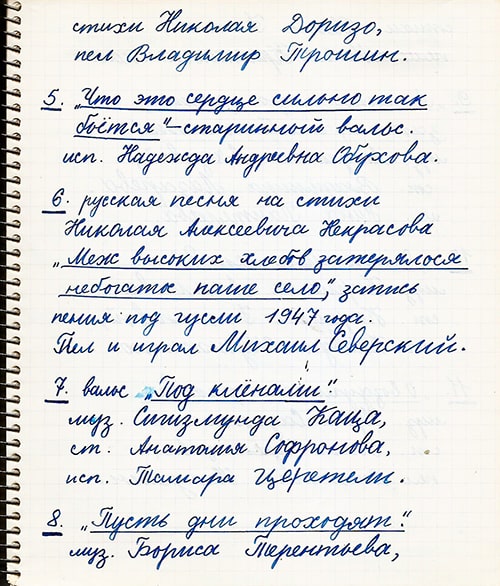 стихи Николая Доризо,
пел Владимир Трошин.
5. „Что это сердце сильно так
бьётся"–старинный вальс.
исп. Надежда Андреевна Обухова.
6. русская песня на стихи
Николая Алексеевича Некрасова
„Меж высоких хлебов затерялося
небогатое наше село", запись
пения под гусли 1947 года.
Пел и играл Михаил Северский.
7. вальс „Под клёнами".
муз. Сигизмунда Каца,
ст. Анатолия Софронова,
исп. Тамара Церетели.
8. „Пусть дни проходят".
муз. Бориса Терентьева,